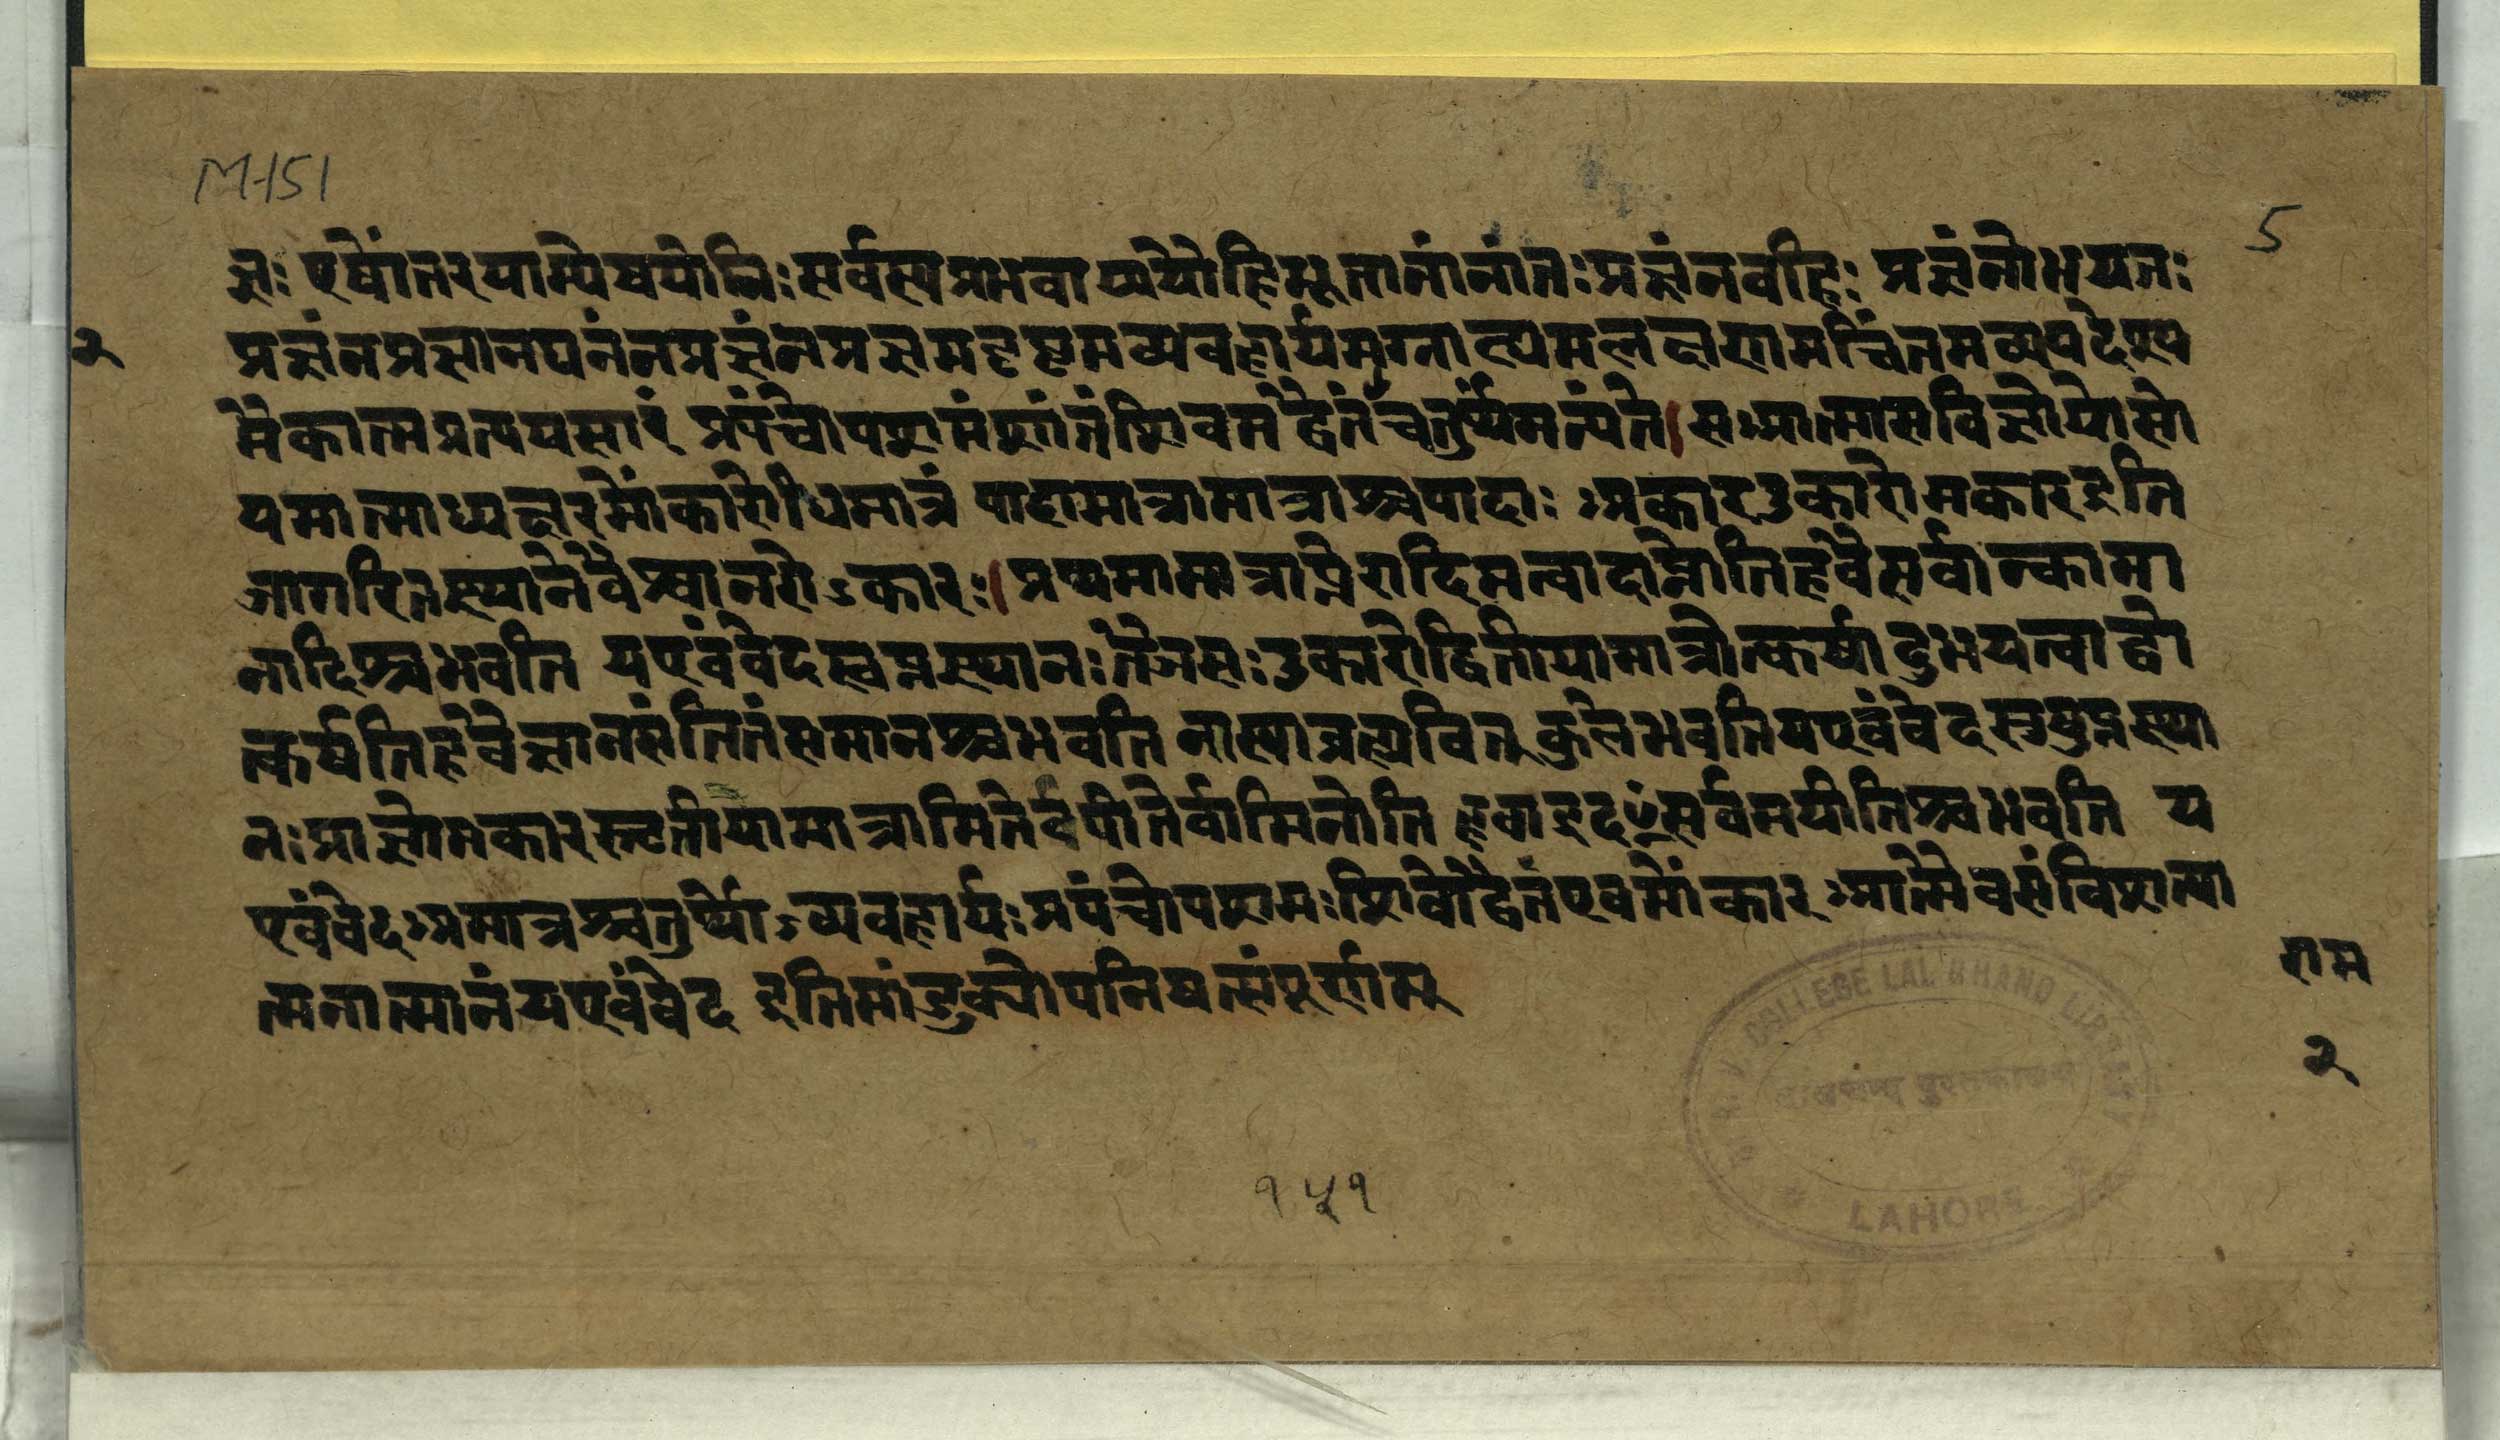 M-151
5
ज्ञः एषोंतरयाम्येषयोनिः सर्वस्यप्रभवाप्ययोहिभूतानांनांतः प्रज्ञंनवहिः प्रज्ञंनोभयतः
२
प्रज्ञंनप्रज्ञानघनंनप्रज्ञंनप्रज्ञमदृष्टमव्यवहार्यमग्नात्यमलक्षणमचिंतमव्यपदेश्य
मेकात्मप्रत्ययसारं प्रपंचोपशमंशांतंशिवमद्वैतंचतुर्थंमन्यंते। सःआत्मासविज्ञेयोसो
यमात्माध्यक्षरमोंकारोधिमात्रं पादामात्रामात्राश्चपादाः अकारउकारोमकारइति
जागरितस्थानेवैश्वानरोऽकारः। प्रथमामात्राप्तेरादिमत्वादाप्नोतिहवैसर्वान्कामा
नादिश्चभवति यएवंवेदस्वप्नस्थानः तैजसः उकारोद्वितीयामात्रोत्कर्षादुभयत्वाद्वो
त्कर्षतिहवैज्ञानसंततिंसमानश्चभवति नास्याब्रह्मवित् कुलेभवतियएवंवेदसुषुप्नस्था
नः प्राज्ञोमकारस्तृतीयामात्रामितेरपीतेर्वामिनोति हवाइदꣳसर्वमपीतिश्चभवति य
एवंवेदअमात्रश्चतुर्थोऽव्यवहार्यः प्रपंचोपशमः शिवोद्वैतएवमोंकारआत्मैवसंविशत्या
त्मनात्मानंयएवंवेद इतिमांडुक्योपनिषत्संपूर्णम्
राम
२
D.A.V. COLLEGE LAL CHAND LIBRARY
लालचन्द पुस्तकालय
LAHORE
१५१